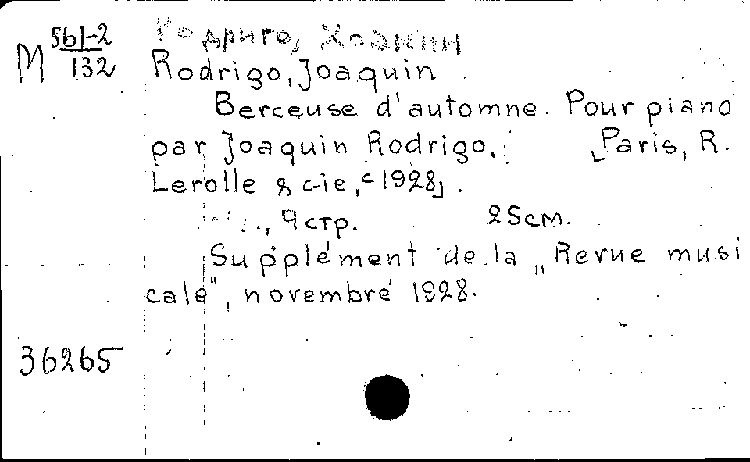 М 561-2
132
Родриго, Хоакин
Rodrigo, Joaquin
Berceuse d'automne. Pour piano
par Joaquin Rodrigo. [Paris, R.
Lerolle & cie, c 1928].
9 стр. 25 см.
Supplément de la „Revue musi
cale", novembre 1928.
36265